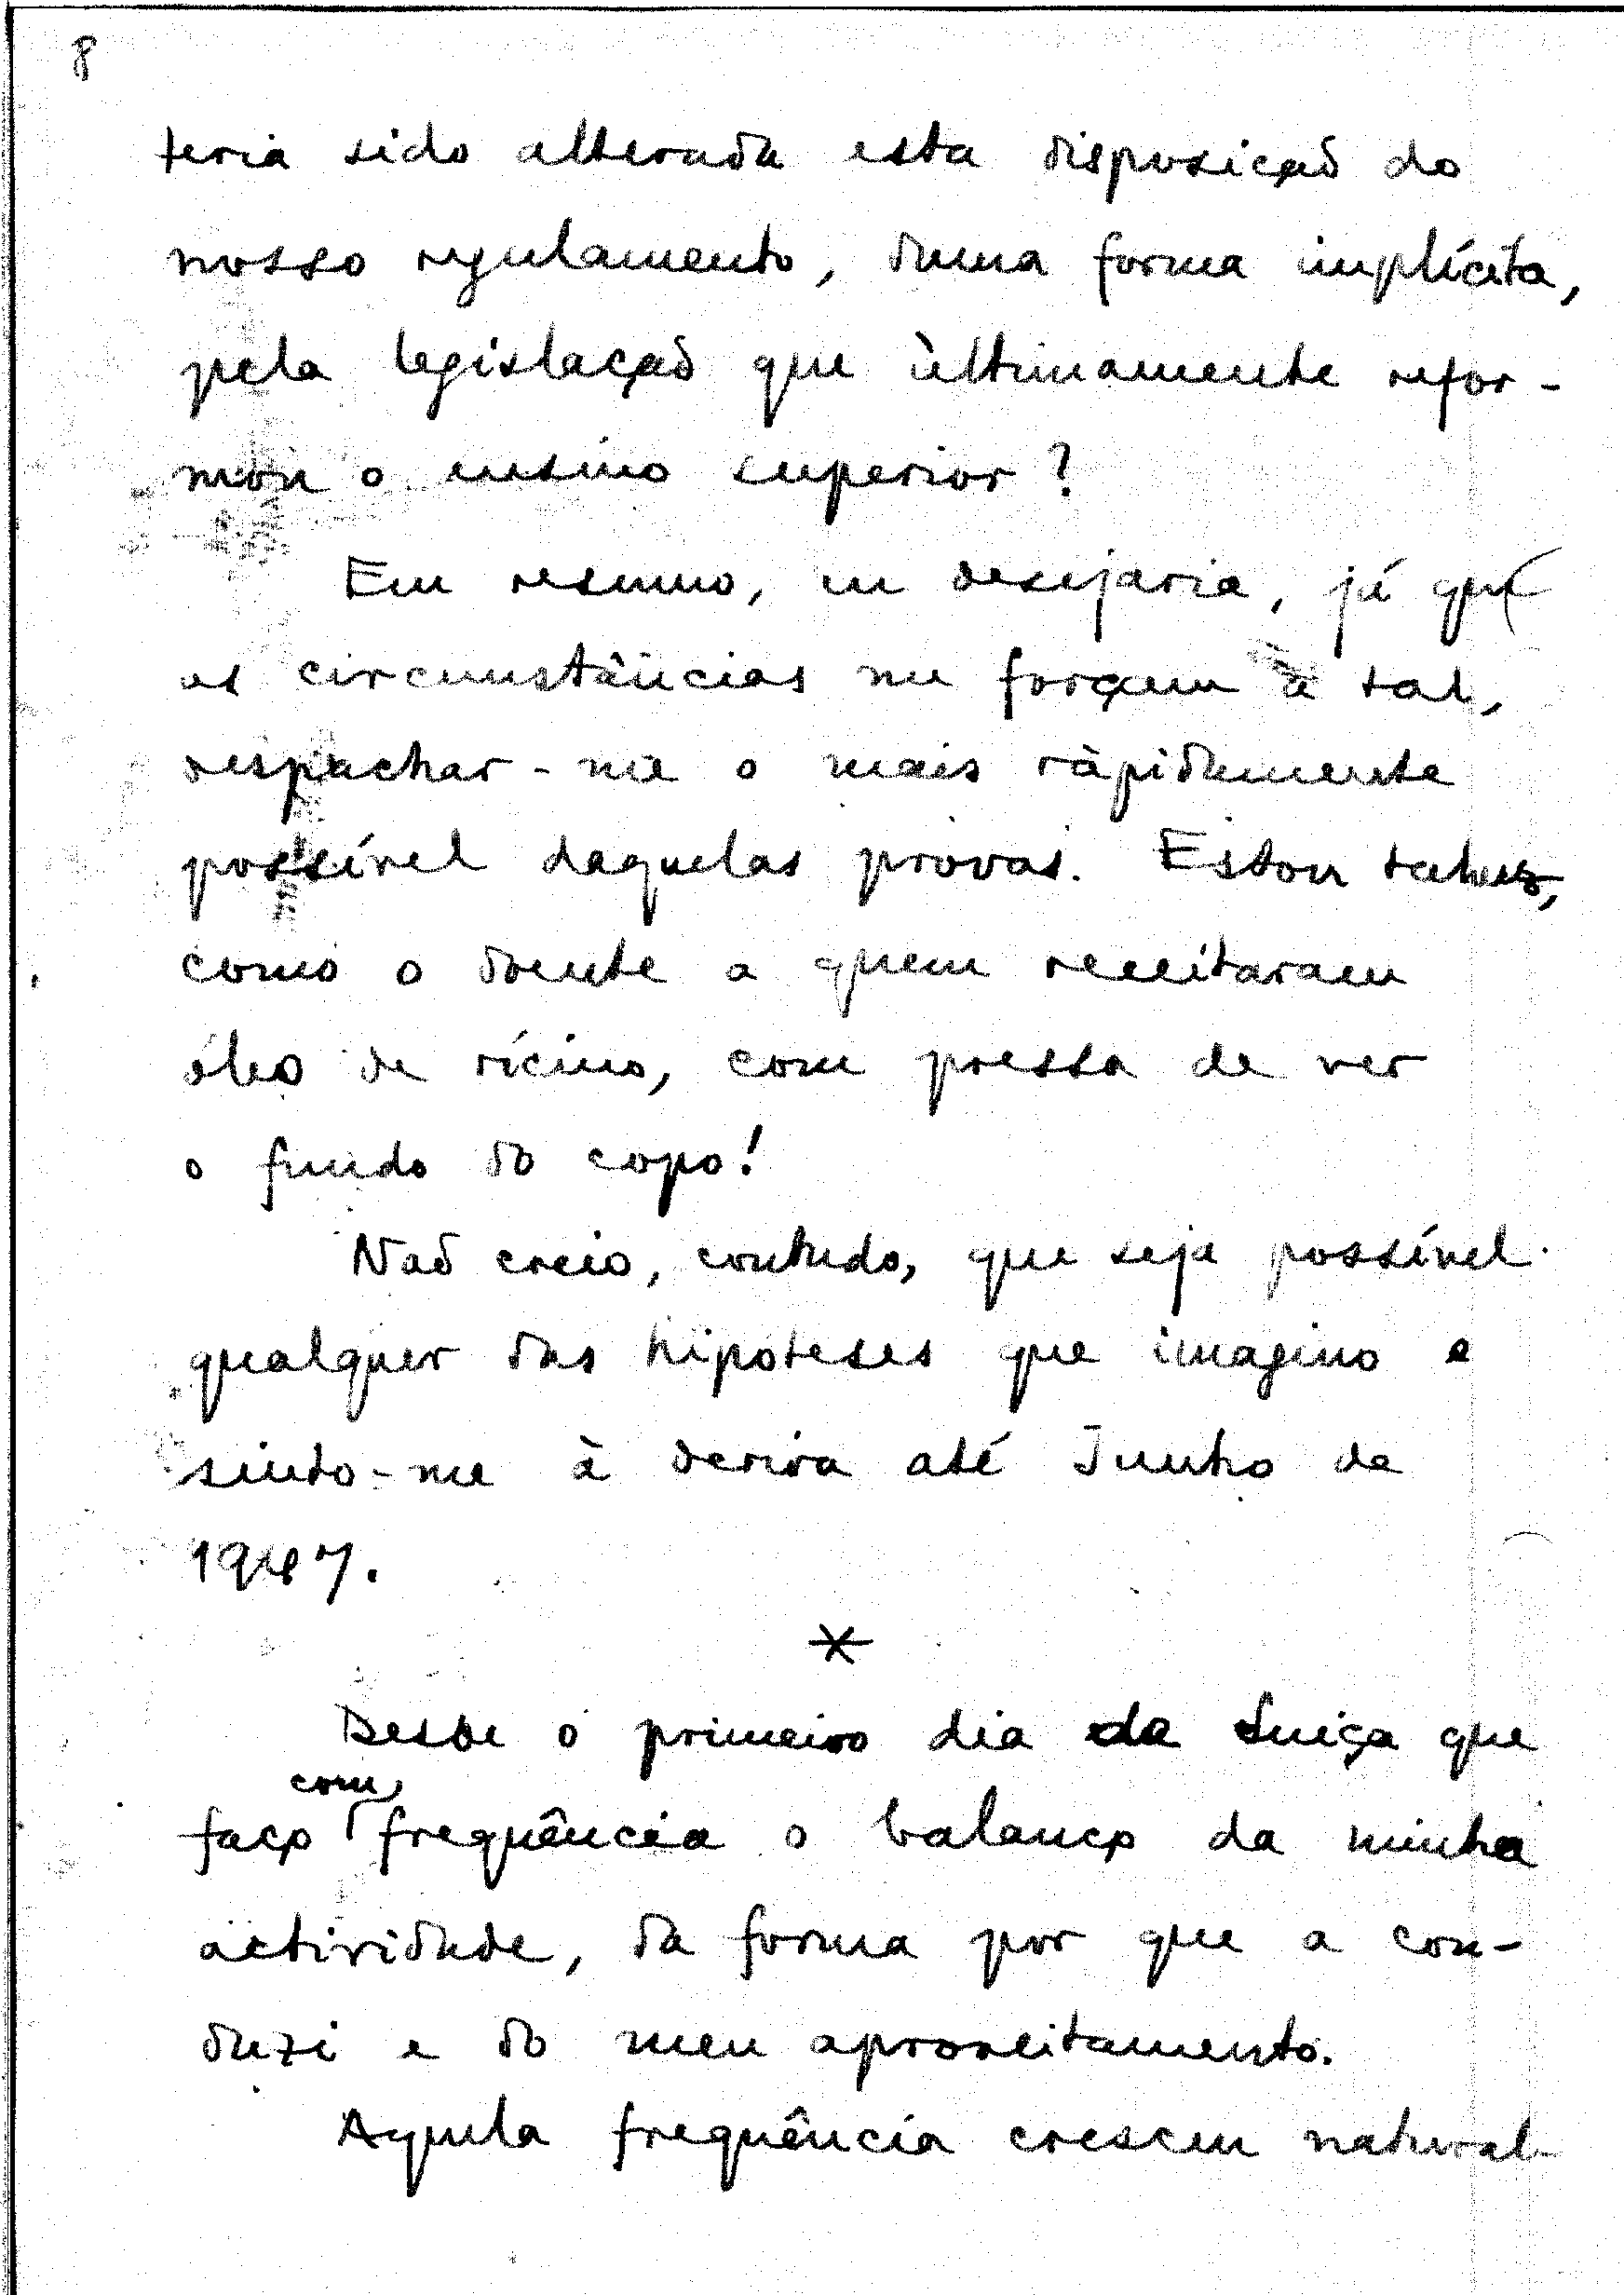 8
teria sido alterada esta disposição do
nosso regulamento, duma forma implícita,
pela legislação que ùltimamente refor-
mou o ensino superior?
Em resumo, eu desejaria, já que
as circunstâncias me forçam a tal,
despachar-me o mais ràpidamente
possível daquelas provas. Estou talvez,
como o doente a quem receitaram
óleo de rícino, com pressa de ver
o fundo do copo!
Não creio, contudo, que seja possível
qualquer das hipóteses que imagino e
sinto-me à deriva até Junho de
1947.
*
Desde o primeiro dia de Suiça que
faço com frequência o balanço da minha
actividade, da forma por que a con-
duzi e do meu aproveitamento.
Aquela frequência cresceu natural-